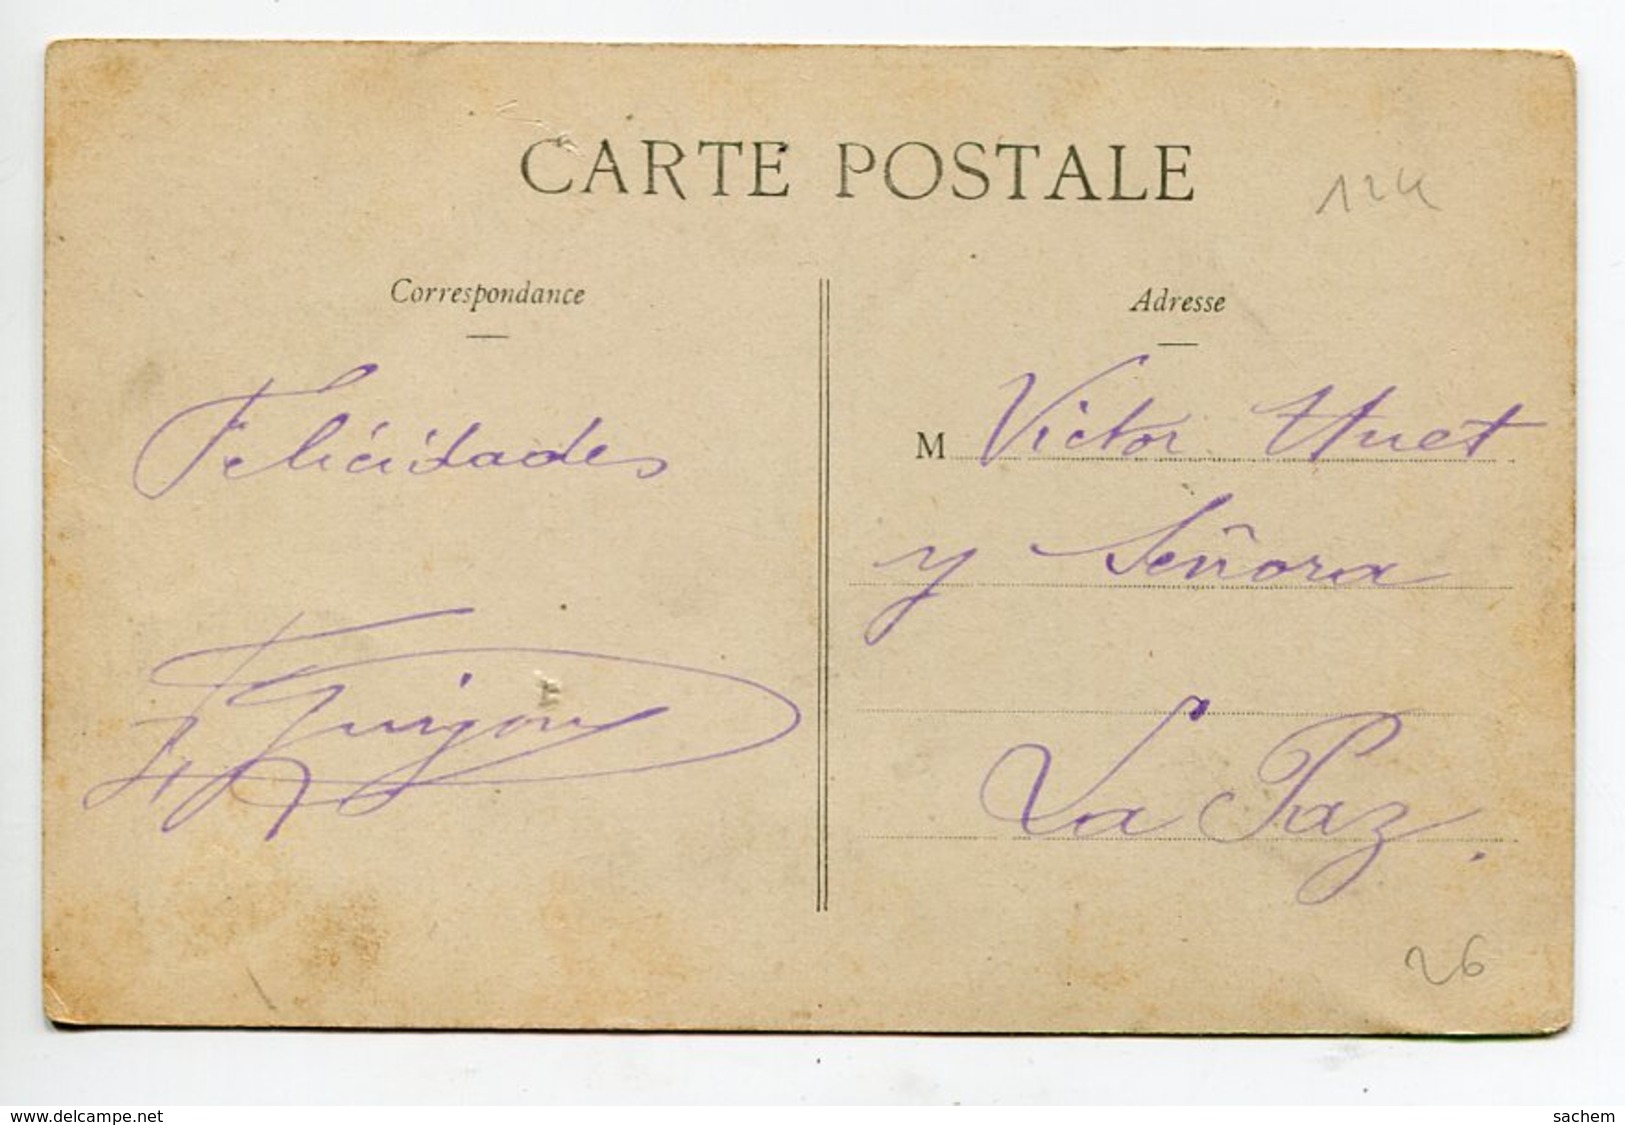 CARTE POSTALE
124
Correspondance
Adresse
Felicidades
M Victor Huet
y Señora
La Paz.
26
www.delcampe.net
sachem